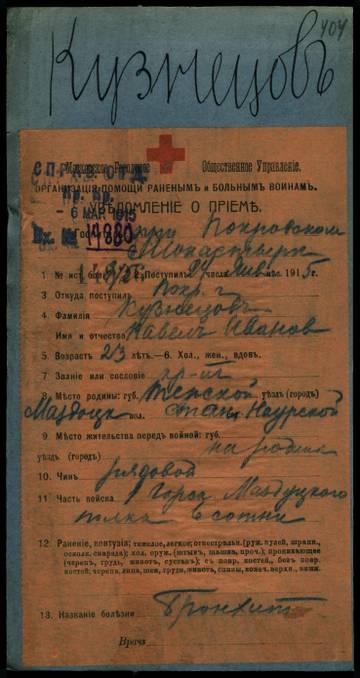 404
Кузнецовъ
Московское Городское Общественное Управленіе.
СПРАВ. ОТД.
ОРГАНИЗАЦІЯ ПОМОЩИ РАНЕНЫМЪ и БОЛЬНЫМЪ ВОИНАМЪ.
- 6 МАР 1915
УВѢДОМЛЕНІЕ О ПРІЕМѢ.
Вх. № 11880
Госпит. при Покровскомъ
Монастырѣ
1 № ист. бол. 2 Поступилъ часа янв. мѣс. 1915 г.
3 Откуда поступилъ
4 Фамилія Кузнецовъ
Имя и отчество Павелъ Ивановъ
5 Возрастъ 23 лѣтъ.—6. Хол., жен., вдовъ.
7 Званіе или сословіе
8 Мѣсто родины: губ. Терской уѣздъ (городъ)
Моздокск вол. стан. Наурской
9 Мѣсто жительства передъ войной: губ.
уѣздъ (городъ) на родинѣ
10 Чинъ рядовой
11 Часть войска 1 Горско Моздокскаго
полка 6 сотни
12 Раненіе, контузія: тяжелое, легкое; огнестрѣльн. (руж. пулей, шрапн.,
осколк. снаряда); хол. оруж. (штыкъ, шашка, проч.); проникающее
(черепъ, грудь, животъ, суставъ); съ повр. костей, безъ повр.
костей, черепа, лица, шеи, груди, животъ, спины, конеч. верхн., нижн.
13. Названіе болѣзни Бронхит
Врачъ